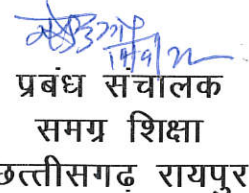 प्रबंध संचालक
समग्र शिक्षा
छत्तीसगढ़ रायपुर